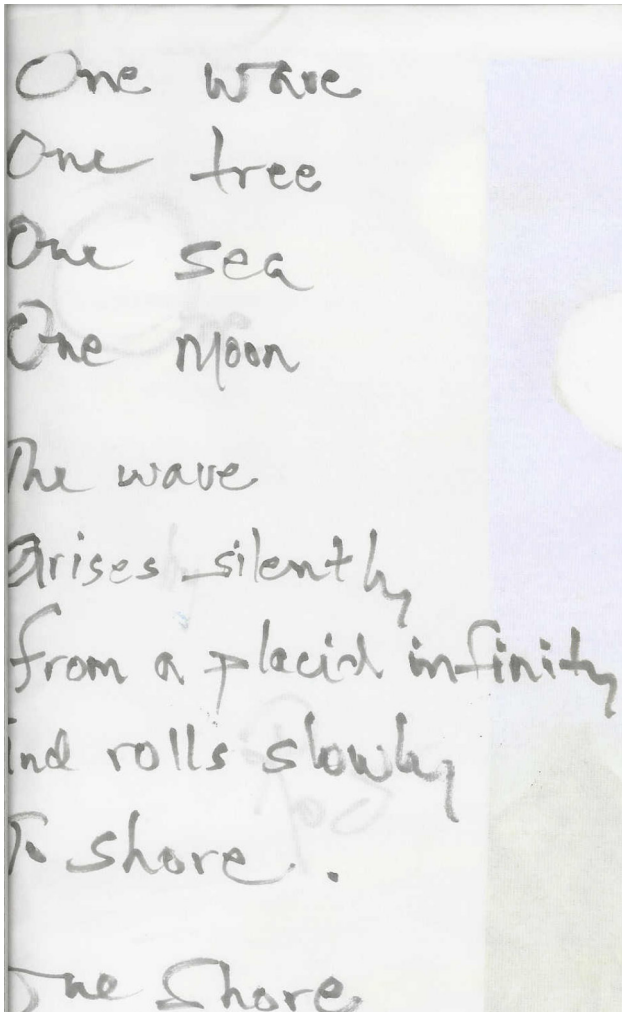 One wave
One tree
One sea
One Moon
The wave
Arises silently
from a placid infinity
and rolls slowly
To shore.
One Shore